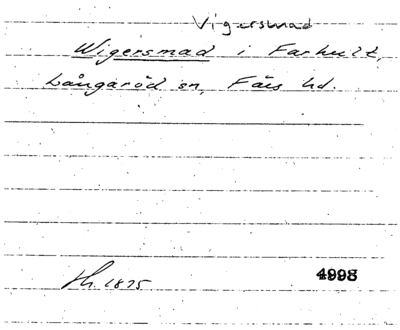 Vigersmad
Wigersmad i Farhult,
Långaröd sn, Färs hd.
Th. 1875
4998